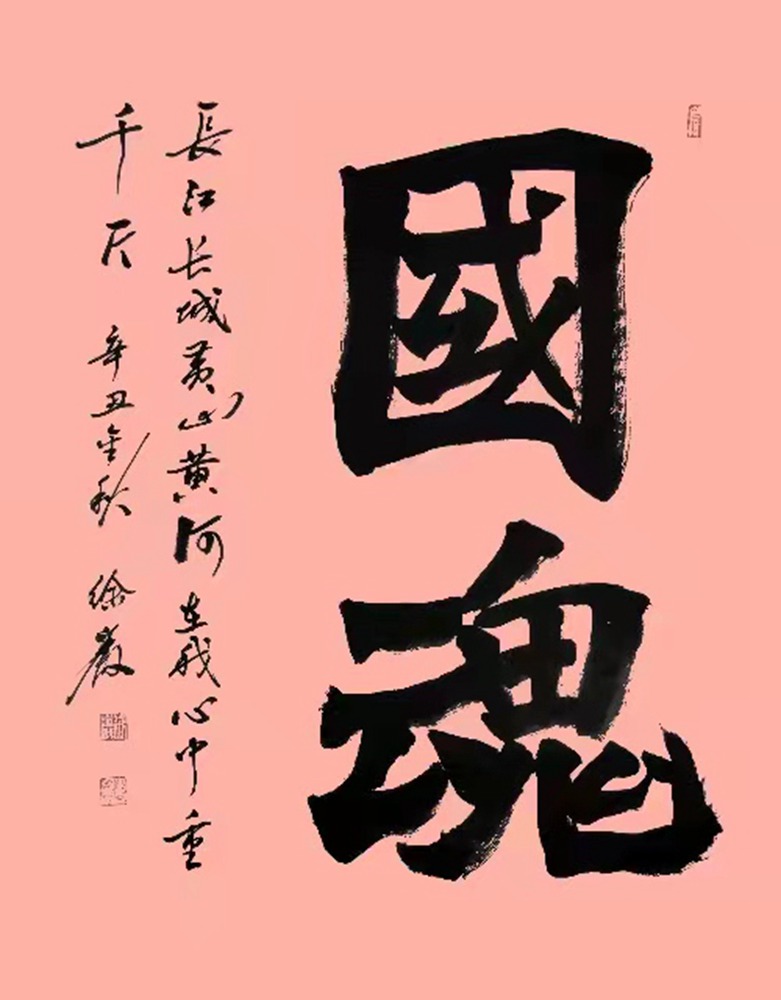 國魂
長江长城黄山黄河在我心中重
千斤 辛丑金秋 徐